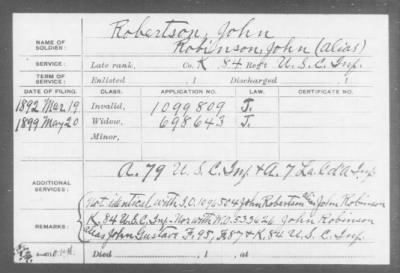 Robertson, John
NAME OF SOLDIER: Robinson, John (alias)
SERVICE: Late rank, Co. K, 84 Reg't U.S.C. Inf.
TERM OF SERVICE: Enlisted , 1 Discharged , 1
DATE OF FILING. CLASS. APPLICATION NO. LAW. CERTIFICATE NO.
1892 Mar. 19 Invalid, 1099809 J.
1899 May 20 Widow, 698643 J.
Minor,
ADDITIONAL SERVICES: A. 79 U.S.C. Inf & A. 7 La. Cd A Inf
Not identical with S.O. 1096504 John Robertson alias John Robinson
REMARKS: K. 84 U.S.C. Inf. Nor with W.O. 533626 John Robinson
alias John Gustave F. 95, F. 87 & K. 84 U.S.C. Inf.
Died , 1 , at